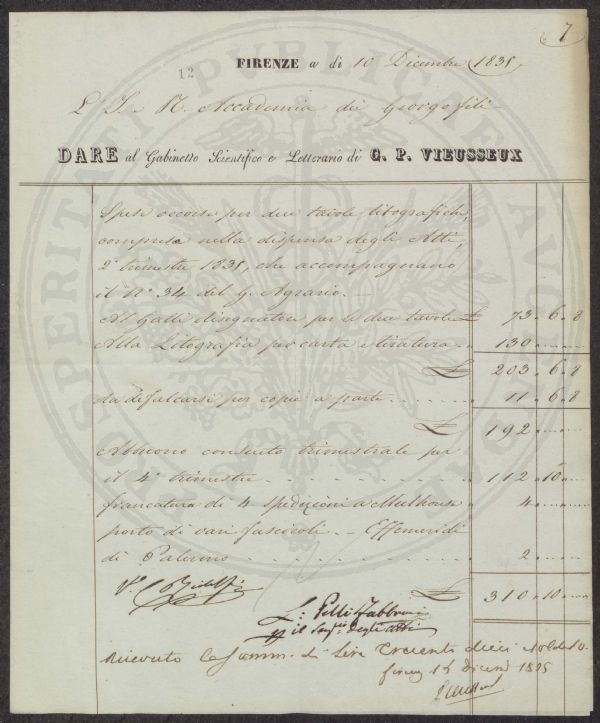 7
12
FIRENZE a dì 10 Dicembre 1835
L'I. e R. Accademia dei Georgofili
DARE al Gabinetto Scientifico e Letterario di G. P. VIEUSSEUX
Spese occorse per due tavole litografiche
comprese nella dispensa degli Atti,
2° trimestre 1835, che accompagnano
il N° 34 del G. Agrario. —
Al Gatti disegnatore per le due tavole £ 73. 6. 8
Alla Litografia per carta e tiratura . 130
£ 203. 6. 8
da defalcarsi per copie a parte 11. 6. 8
£ 192
Abbuono consueto trimestrale per
il 4° trimestre 112. 10
francatura di 4 spedizioni a Mulhouse 4
porto di vari fascicoli Effemeridi
di Palermo 2
£ 310. 10
V°
L: Pelli Fabbroni
il Seg.io degli Atti
Ricevuto la somm. di Lire Trecento dieci e soldi 10.
1835